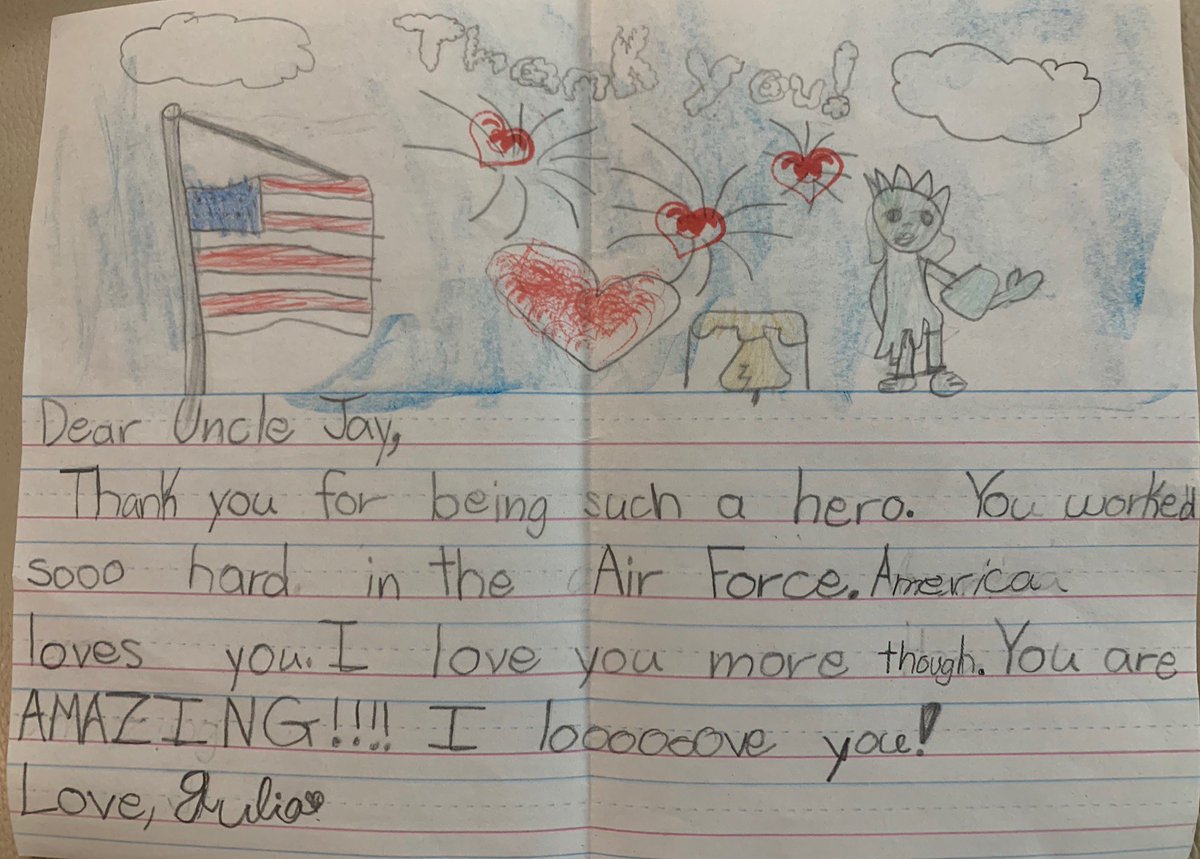 Thank you!
Dear Uncle Jay,
Thank you for being such a hero. You worked
sooo hard in the Air Force. America
loves you. I love you more though. You are
AMAZING!!!! I looooooove you!
Love, Julia